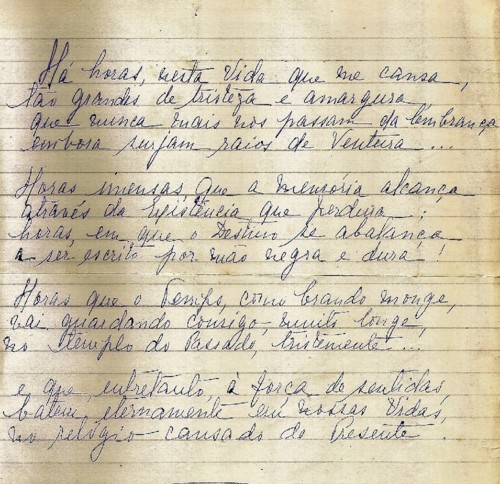 Há horas, nesta Vida que me cansa,
tão grandes de tristeza e amargura,
que nunca mais nos passam da lembrança
embora surjam raios de Ventura...
Horas imensas que a memória alcança
através da Existência que perdura;
horas, em que o Destino se abalança
a ser escrito por mão negra e dura!
Horas que o Tempo, como brando monge,
vai guardando consigo, muito longe,
no templo do Passado, tristemente...
e que, entretanto, à força de sentidas,
batem, eternamente em nossas Vidas,
no relógio cansado do Presente.